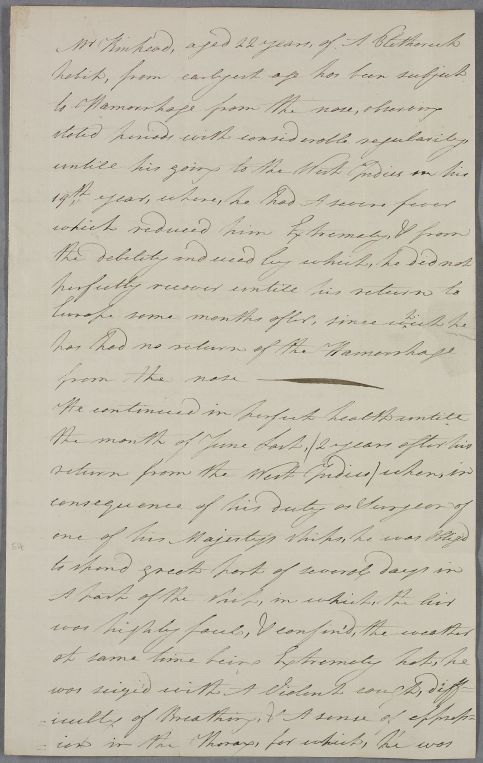 Mr Kinhead, aged 22 years, of A Plethorick
habit, from earlyest age has been subject
to Hæmorrhage from the nose, observing
stated periods with considerable regularity
untill his going to the West Indies in his
19th year, where, he had A severe fever
which reduced him Extremely, & from
the debility induced by which, he did not
perfectly recover untill his return to
Europe some months after, since which he
has had no return of the Hæmorrhage
from the nose
He continued in perfect health untill
the month of June last, (2 years after his
return from the West Indies) when, in
consequence of his duty as Surgeon of
one of his Majestys ships, he was Obliged
to spend great part of several days in
A part of the ship, in which, the air
was highly foul, & confin'd, the weather
at same time being Extremely hot, he
was seized with A violent cough, diff-
iculty of Breathing, & A sense of oppress-
ion in the Thorax, for which, he was